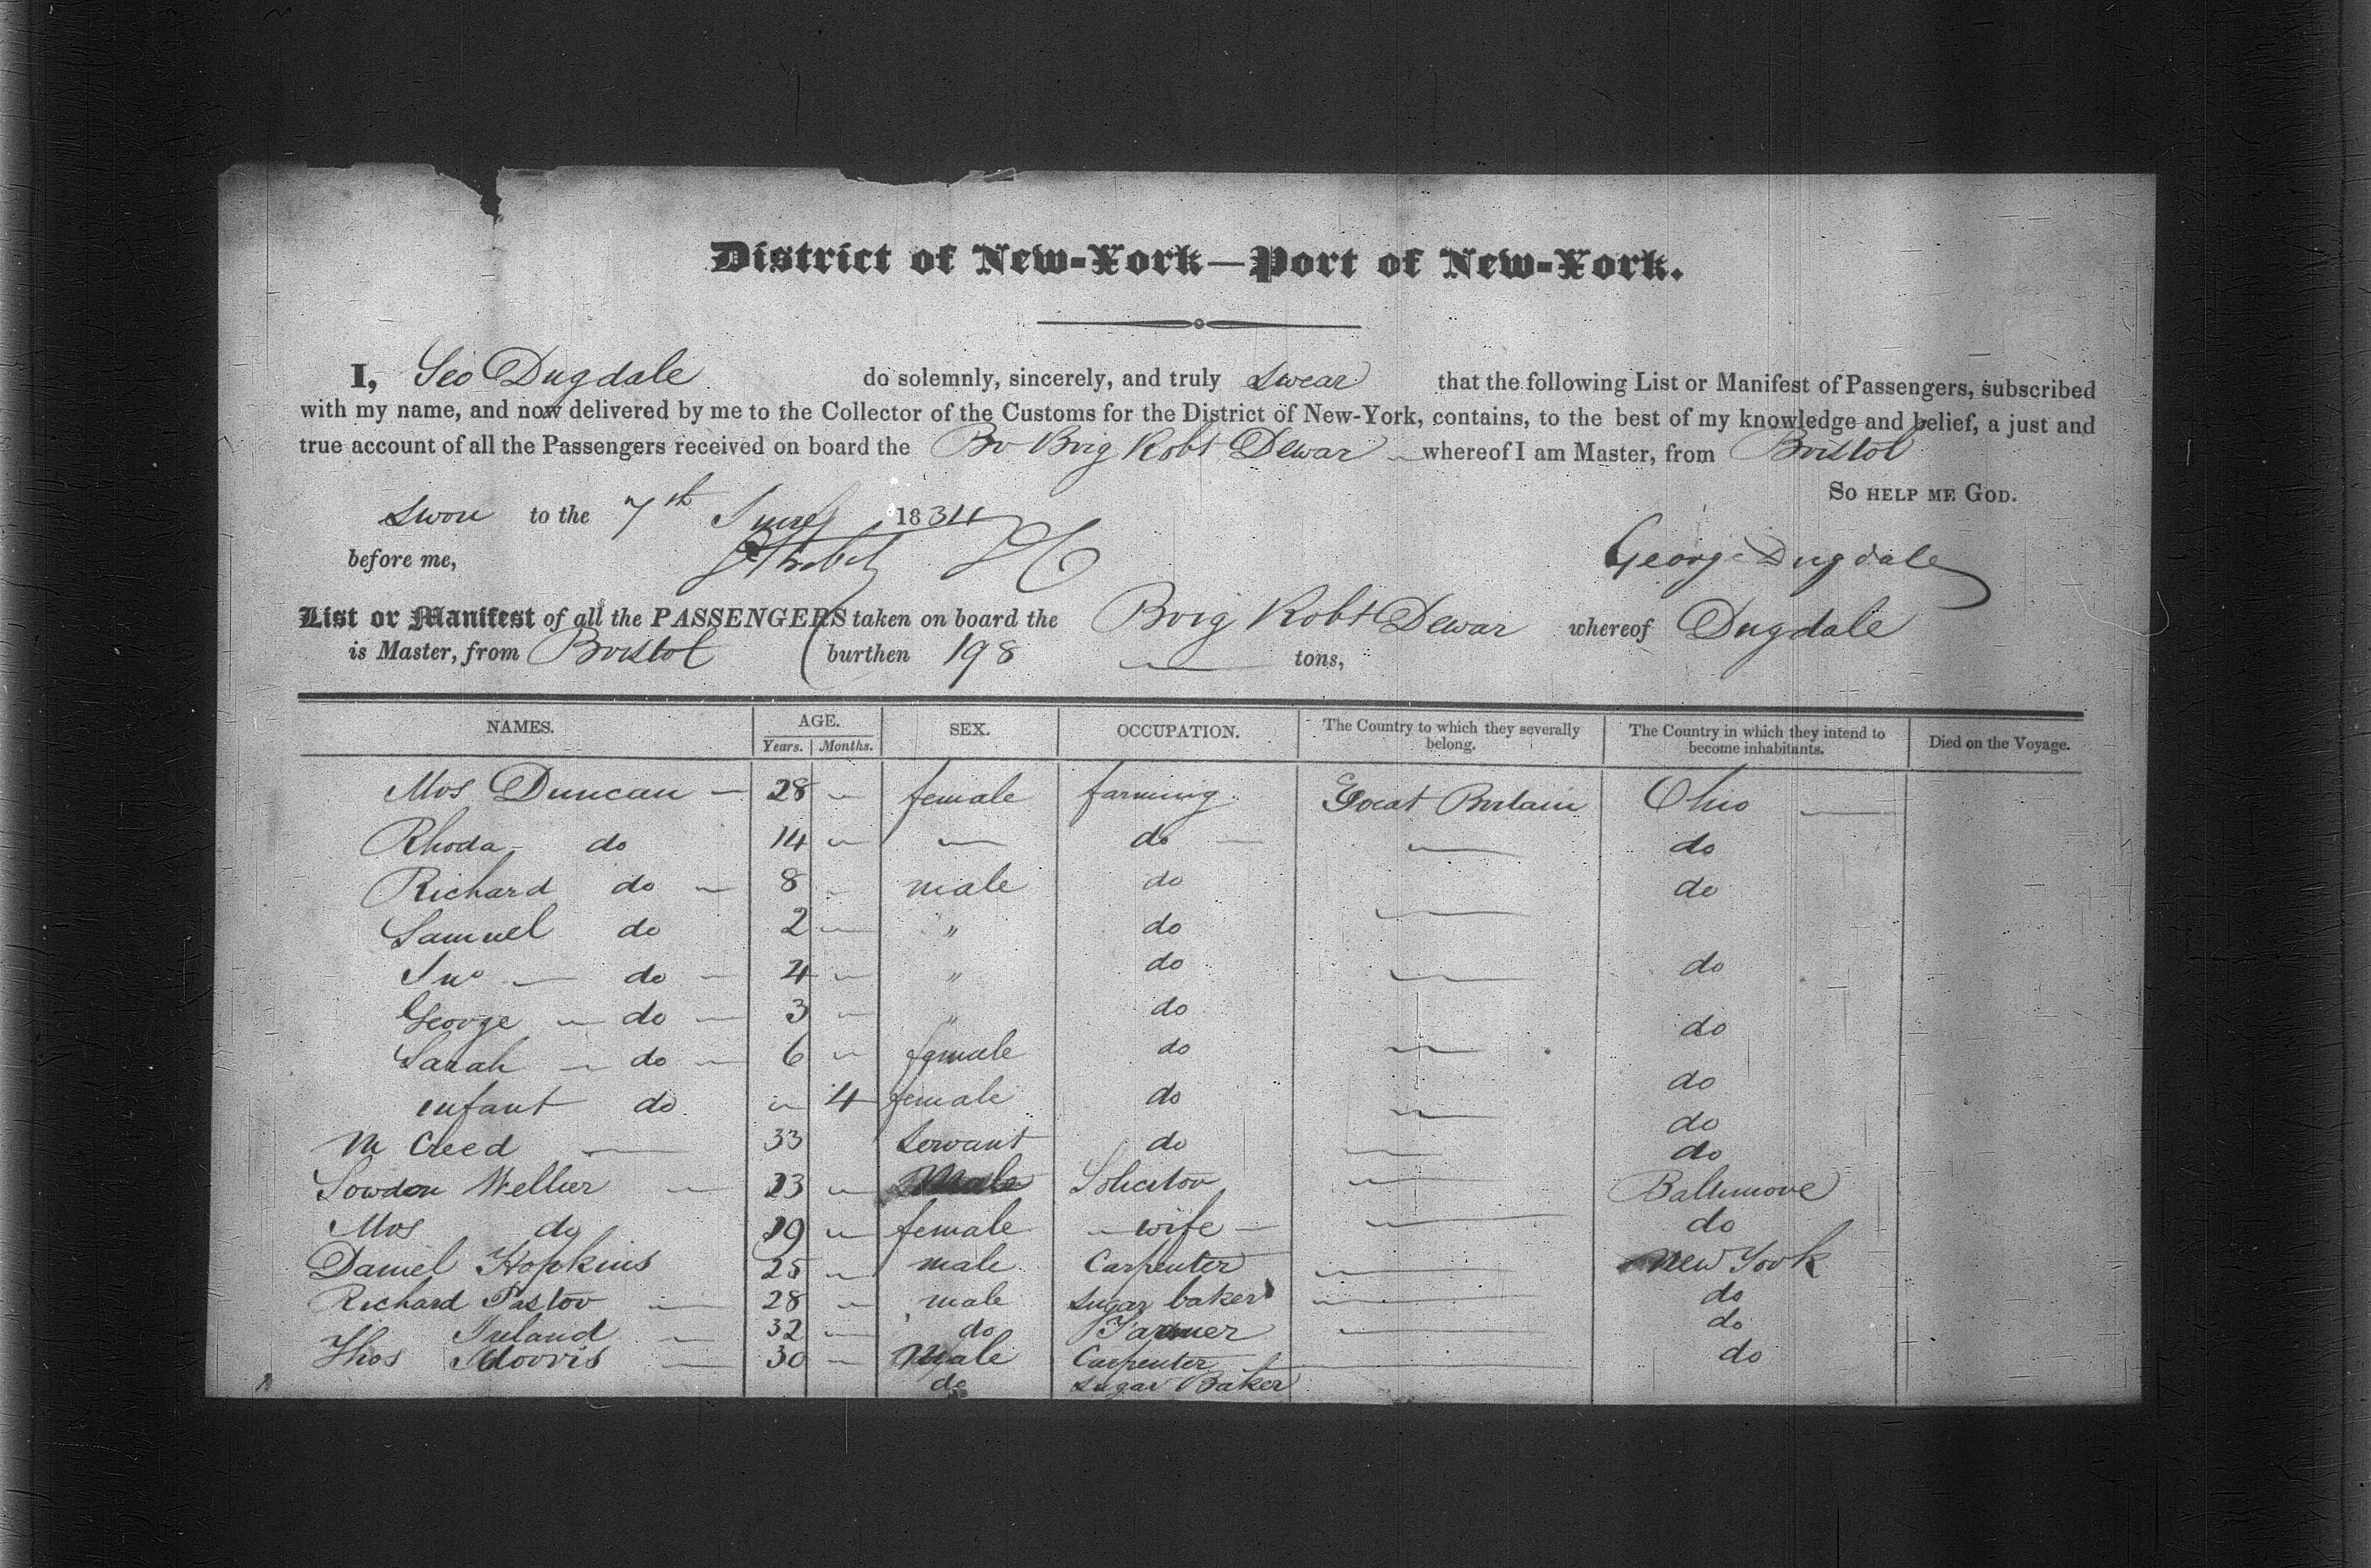 District of New-York—Port of New-York.
I, Geo Dugdale do solemnly, sincerely, and truly swear that the following List or Manifest of Passengers, subscribed
with my name, and now delivered by me to the Collector of the Customs for the District of New-York, contains, to the best of my knowledge and belief, a just and
true account of all the Passengers received on board the Br Brig Robt Dewar whereof I am Master, from Bristol
So help me God.
Sworn to the 7th June 1834
before me,
George Dugdale
List or Manifest of all the PASSENGERS taken on board the Brig Robt Dewar whereof Dugdale
is Master, from Bristol burthen 198 tons,
NAMES. AGE. Years. Months. SEX. OCCUPATION. The Country to which they severally belong. The Country in which they intend to become inhabitants. Died on the Voyage.
Mrs Duncan — 28 " female farming Great Britain Ohio
Rhoda do 14 " — do — do
Richard do 8 " male do — do
Samuel do 2 — " do
Jno — do 4 " " do — do
George — do 3 — " do do
Sarah — do 6 " female do — do
infant do " 4 female do — do
M Creed — 33 servant do — do
Sowdon Wellier — 23 " Male Solicitor — Baltimore
Mrs do 29 " female wife — do
Daniel Hopkins 25 " male Carpenter — New York
Richard Pastor — 28 " male sugar baker — do
Ireland — 32 — do Farmer — do
Thos Morris — 30 — Male Carpenter — do
do Sugar Baker